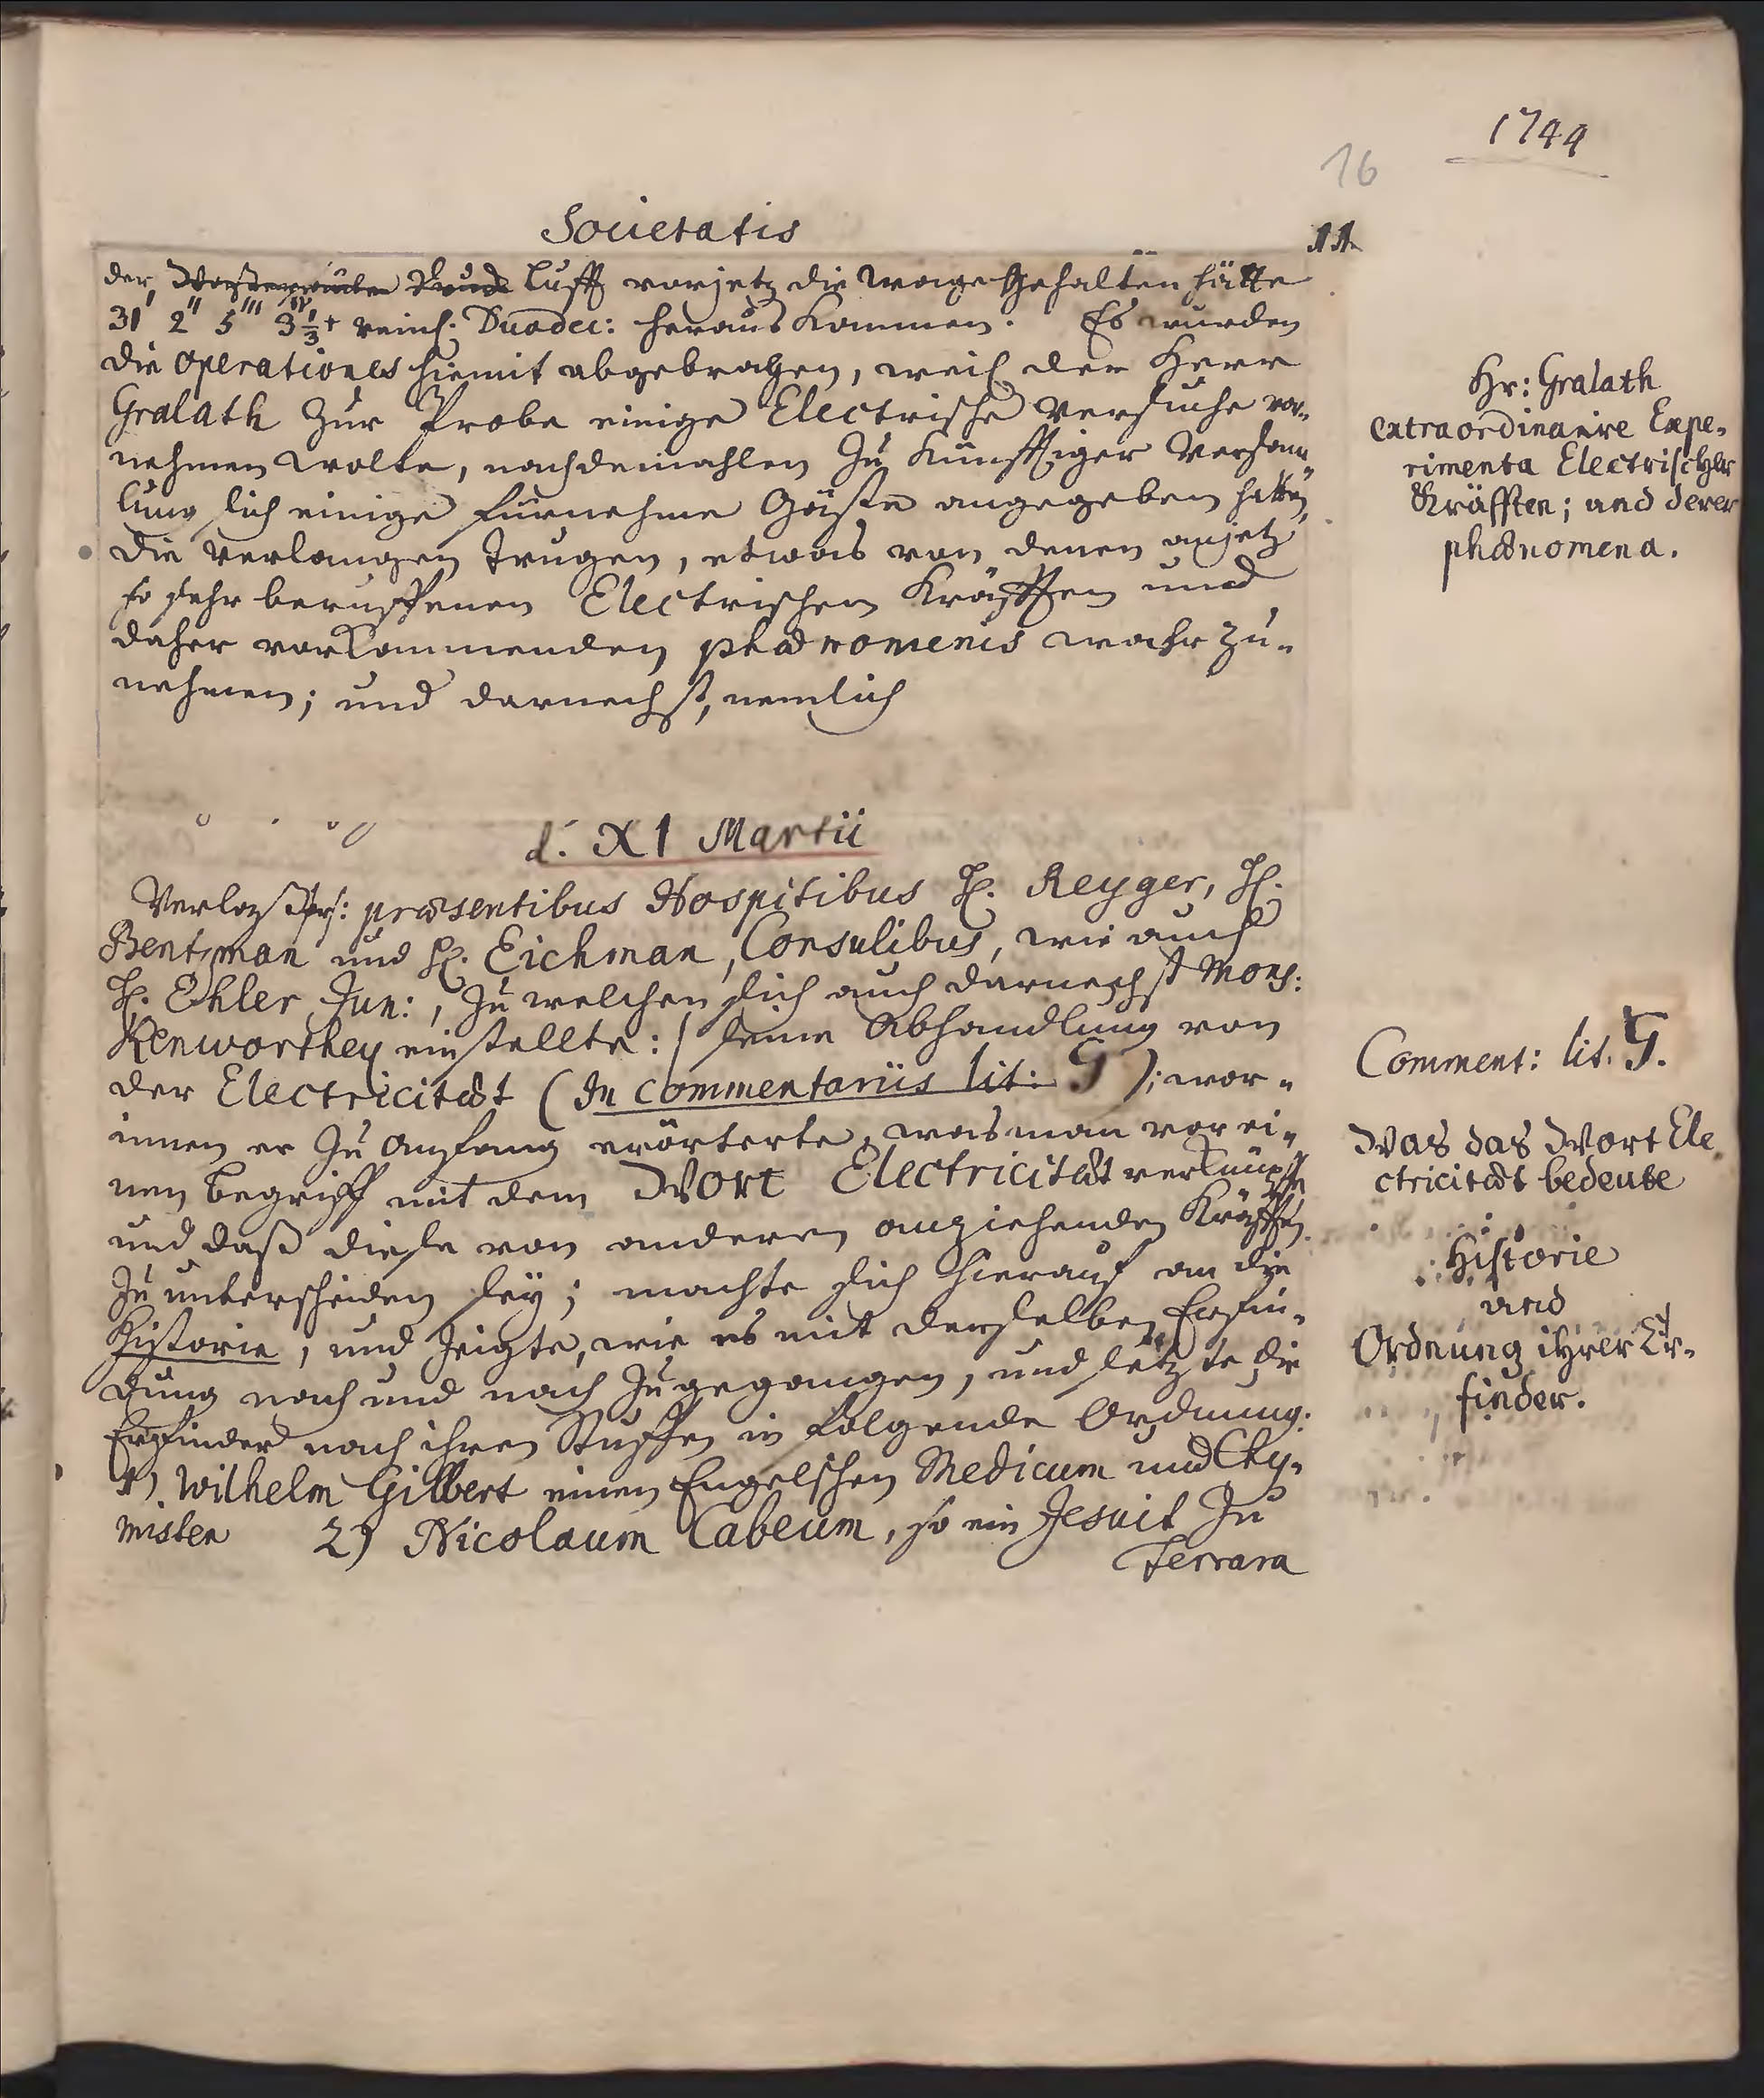 1744
16
Societatis
11.
der Luft vorjetz die wage gehalten hätte
31' 2'' 5''' 3 1/3 IV + reinl. Duodec: heraus kommen. Es wurden
die operationes hiemit abgebrochen, weil der Herr
Gralath zur Probe einige Electrische Versuche vor-
nehmen wolte, nachdemahlen zu künfftiger Versam-
lung sich einige fürnehme Gäste angegeben hätten,
die verlangen trugen, etwas von denen anjetz
so sehr beruffenen Electrischen Kräfften und
daher vorkommenden phænomenis wahr zu-
nehmen; und darnechst, nemlich
Hr: Gralath
extraordinaire Expe-
rimenta Electrischer
Kräfften; und derer
phænomena.
d. XI Martii
Verlaß præsentibus Hospitibus H. Reyger, H.
Bentzman und H. Eichman, Consulibus, wie auch
H. Ehler Jun:, zu welchen sich auch darnechst Mons:
Kenworthey einstellte: / seine Abhandlung von
der Electricitæt (In commentariis lit: G); wor-
innen er zu Anfang erörterte, was man vor ei-
nen begriff mit dem Wort Electricitæt verknüpffe
und daß diese von anderen anziehenden Kräfften
zu unterscheiden sey; machte sich hierauf an die
Historie, und zeigte, wie es mit derselben Erfin-
dung nach und nach zugegangen, und setzte die
Erfinder nach ihren Stuffen in folgende Ordnung.
1) Wilhelm Gilbert einen Engelschen Medicum und Chy-
misten 2) Nicolaum Cabeum, so ein Jesuit zu
Ferrara
Comment: lit. G.
Was das Wort Ele
ctricitæt bedeute
Historie
und
Ordnung ihrer Er-
finder.